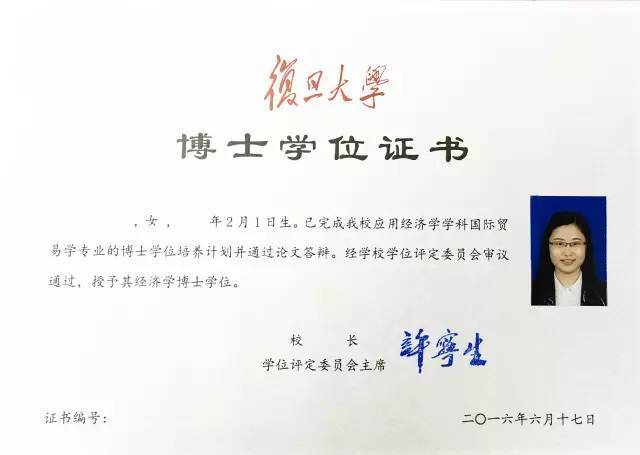 復旦大學
博士学位证书
，女，　　年2月1日生。已完成我校应用经济学学科国际贸
易学专业的博士学位培养计划并通过论文答辩。经学校学位评定委员会审议
通过，授予其经济学博士学位。
校　　长
学位评定委员会主席
許寧生
证书编号：
二〇一六年六月十七日